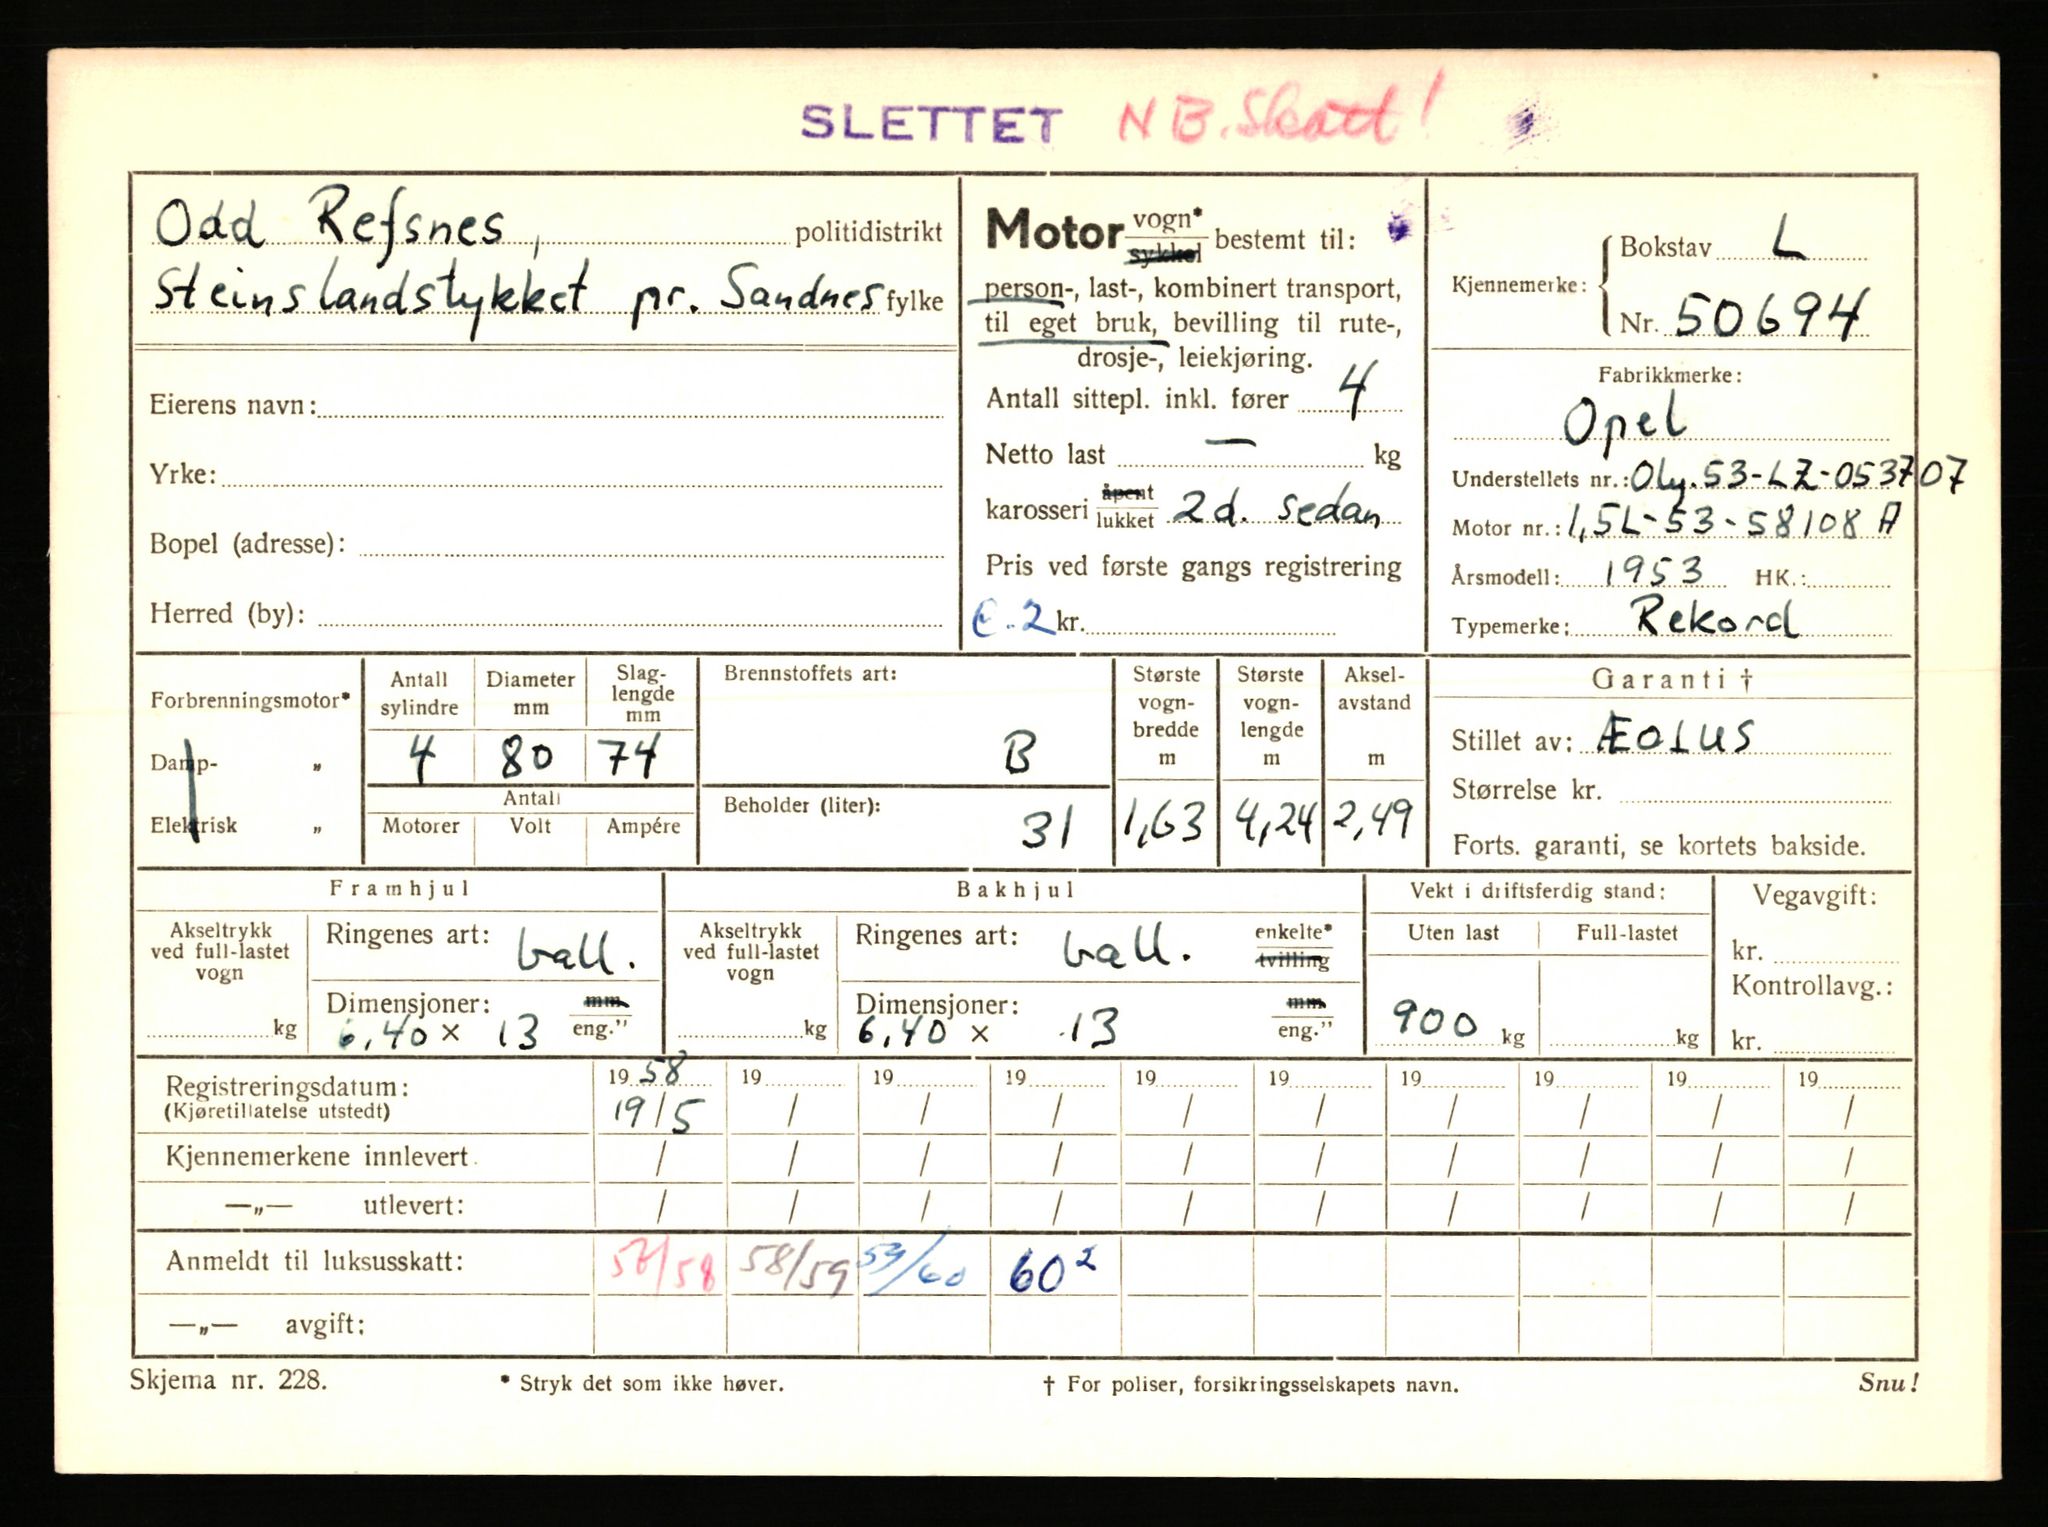 SLETTET NB. Skatt!
Odd Refsnes, politidistrikt
Steinslandstykket pr. Sandnes fylke
Eierens navn:
Yrke:
Bopel (adresse):
Herred (by):
Motor vogn* sykkel bestemt til:
person-, last-, kombinert transport,
til eget bruk, bevilling til rute-,
drosje-, leiekjøring.
Antall sittepl. inkl. fører 4
Netto last — kg
karosseri åpent lukket 2 d. sedan
Pris ved første gangs registrering
kr.
Kjennemerke: Bokstav L
Nr. 50694
Fabrikkmerke:
Opel
Understellets nr.: Oly.53-LZ-053707
Motor nr.: 1,5L-53-58108 A
Årsmodell: 1953 HK.:
Typemerke: Rekord
Forbrenningsmotor*
Damp- „
Elektrisk „
Antall sylindre 4
Diameter mm 80
Slag-lengde mm 74
Antall
Motorer Volt Ampére
Brennstoffets art:
B
Beholder (liter):
31
Største vogn-bredde m 1,63
Største vogn-lengde m 4,24
Aksel-avstand m 2,49
Garanti †
Stillet av: ÆOLUS
Størrelse kr.
Forts. garanti, se kortets bakside.
Framhjul
Akseltrykk ved full-lastet vogn
kg
Ringenes art: ball.
Dimensjoner: mm
6,40 × 13 eng."
Bakhjul
Akseltrykk ved full-lastet vogn
kg
Ringenes art: ball. enkelte* tvilling
Dimensjoner: mm
6,40 × 13 eng."
Vekt i driftsferdig stand:
Uten last Full-lastet
900 kg kg
Vegavgift:
kr.
Kontrollavg.:
kr.
Registreringsdatum: 19 58 19 19 19 19 19 19 19 19 19
(Kjøretillatelse utstedt) 19/5 / / / / / / / / /
Kjennemerkene innlevert / / / / / / / / / /
—„— utlevert: / / / / / / / / / /
Anmeldt til luksusskatt: 57/58 58/59 59/60 60²
—„— avgift:
Skjema nr. 228. * Stryk det som ikke høver. † For poliser, forsikringsselskapets navn. Snu!